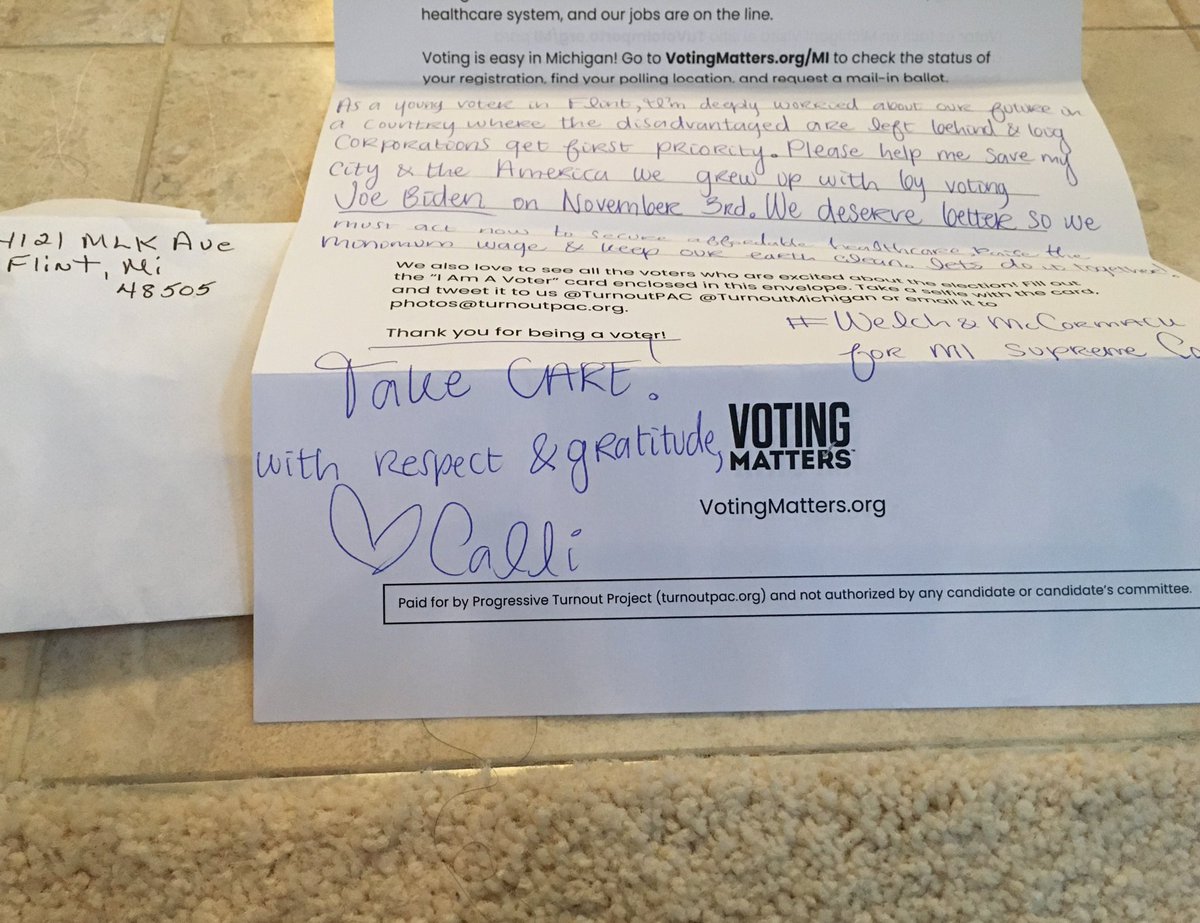 healthcare system, and our jobs are on the line.
Voting is easy in Michigan! Go to VotingMatters.org/MI to check the status of
your registration, find your polling location, and request a mail-in ballot.
As a young voter in Flint, I'm deeply worried about our future in
a country where the disadvantaged are left behind & big
corporations get first priority. Please help me save my
city & the America we grew up with by voting
Joe Biden on November 3rd. We deserve better so we
must act now to secure affordable healthcare, raise the
minomum wage & keep our earth clean. lets do it together!
We also love to see all the voters who are excited about the election! Fill out
the “I Am A Voter” card enclosed in this envelope. Take a selfie with the card,
and tweet it to us @TurnoutPAC @TurnoutMichigan or email it to
photos@turnoutpac.org.
Thank you for being a voter!
#Welch & McCormack
for MI Supreme Co
Take CARE!
with respect & gratitude,
Calli
VOTING
MATTERS
VotingMatters.org
Paid for by Progressive Turnout Project (turnoutpac.org) and not authorized by any candidate or candidate's committee.
4121 MLK Ave
Flint, Mi
48505